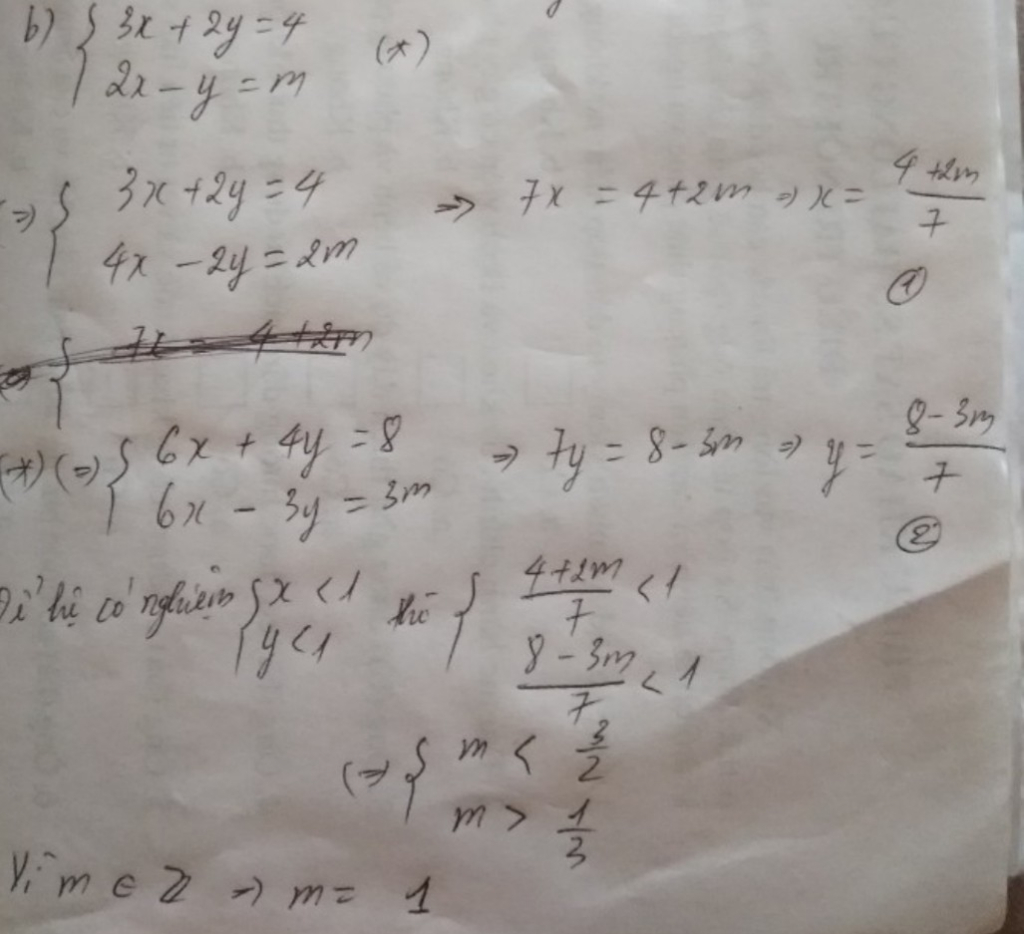 b) { 3x + 2y = 4
2x - y = m (*)
(=) { 3x + 2y = 4
4x - 2y = 2m => 7x = 4 + 2m => x = (4 + 2m)/7 ①
(=) { 7x = 4 + 2m
(*) (=) { 6x + 4y = 8
6x - 3y = 3m => 7y = 8 - 3m => y = (8 - 3m)/7 ②
Để hệ có nghiệm { x < 1
y < 1 thì { (4 + 2m)/7 < 1
(8 - 3m)/7 < 1
(=) { m < 3/2
m > 1/3
Vì m ∈ Z => m = 1